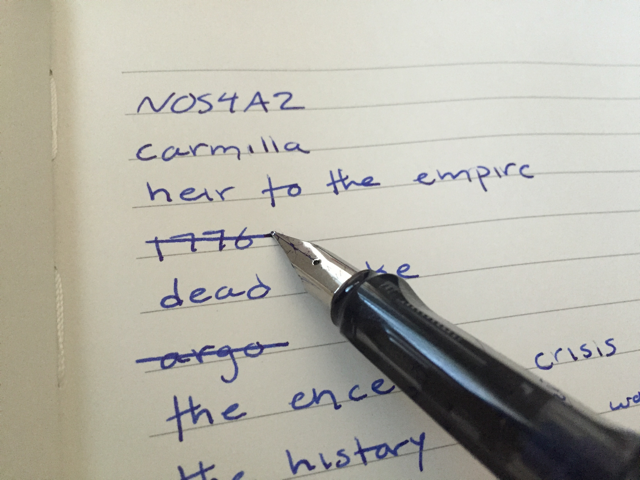 NOS4A2
carmilla
heir to the empire
1776
dead
argo
the crisis
the history